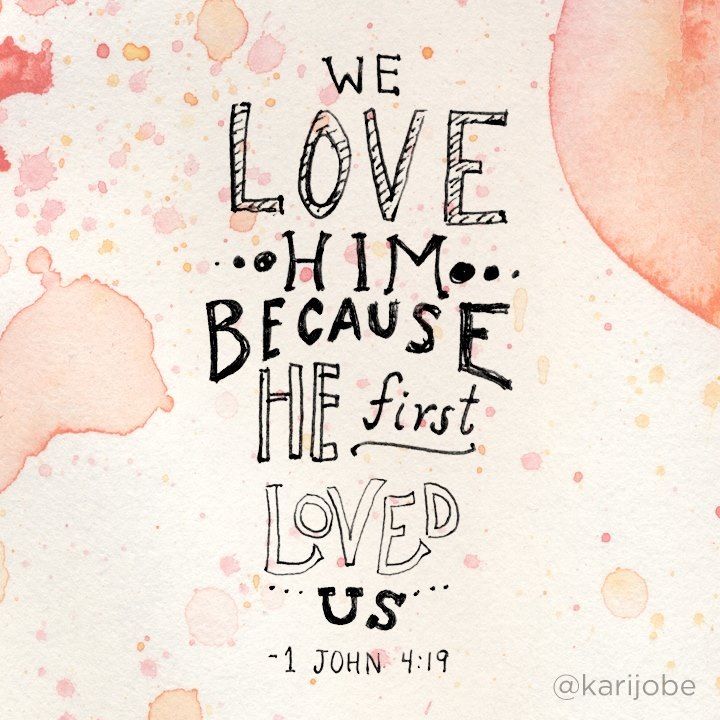 WE
LOVE
HIM
BECAUSE
HE first
LOVED
US
-1 JOHN 4:19
@karijobe